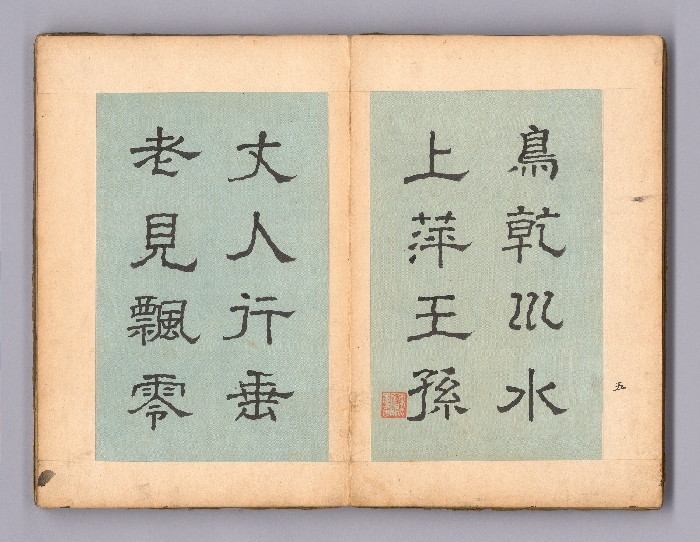 五
鳥乾巛水
上萍王孫
丈人行垂
老見飄零